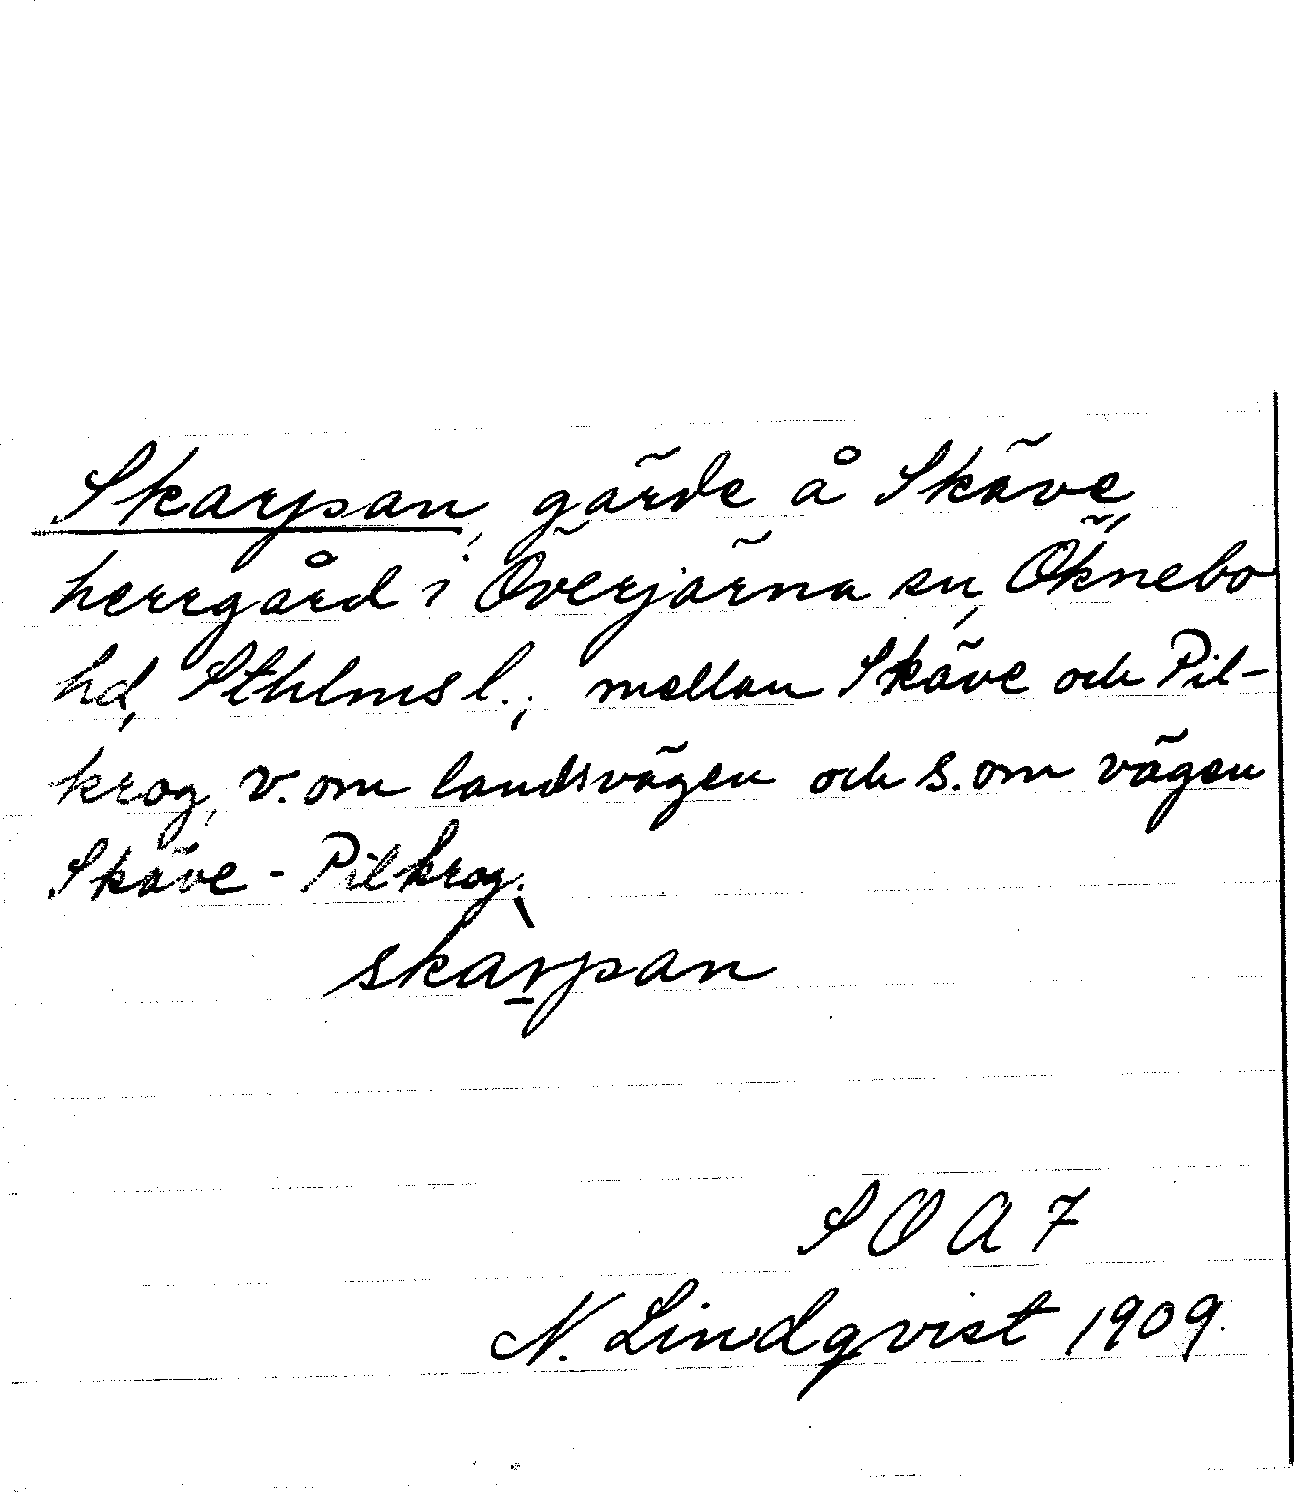 Skarpan, gärde å Skäve,
herrgård i Överjärna sn, Öknebo
hd, Sthlms l.; mellan Skäve och Pil-
krog, v. om landsvägen och s. om vägen
Skäve - Pilkrog.
skar̲̀pan
S O A 7
N. Lindqvist 1909.